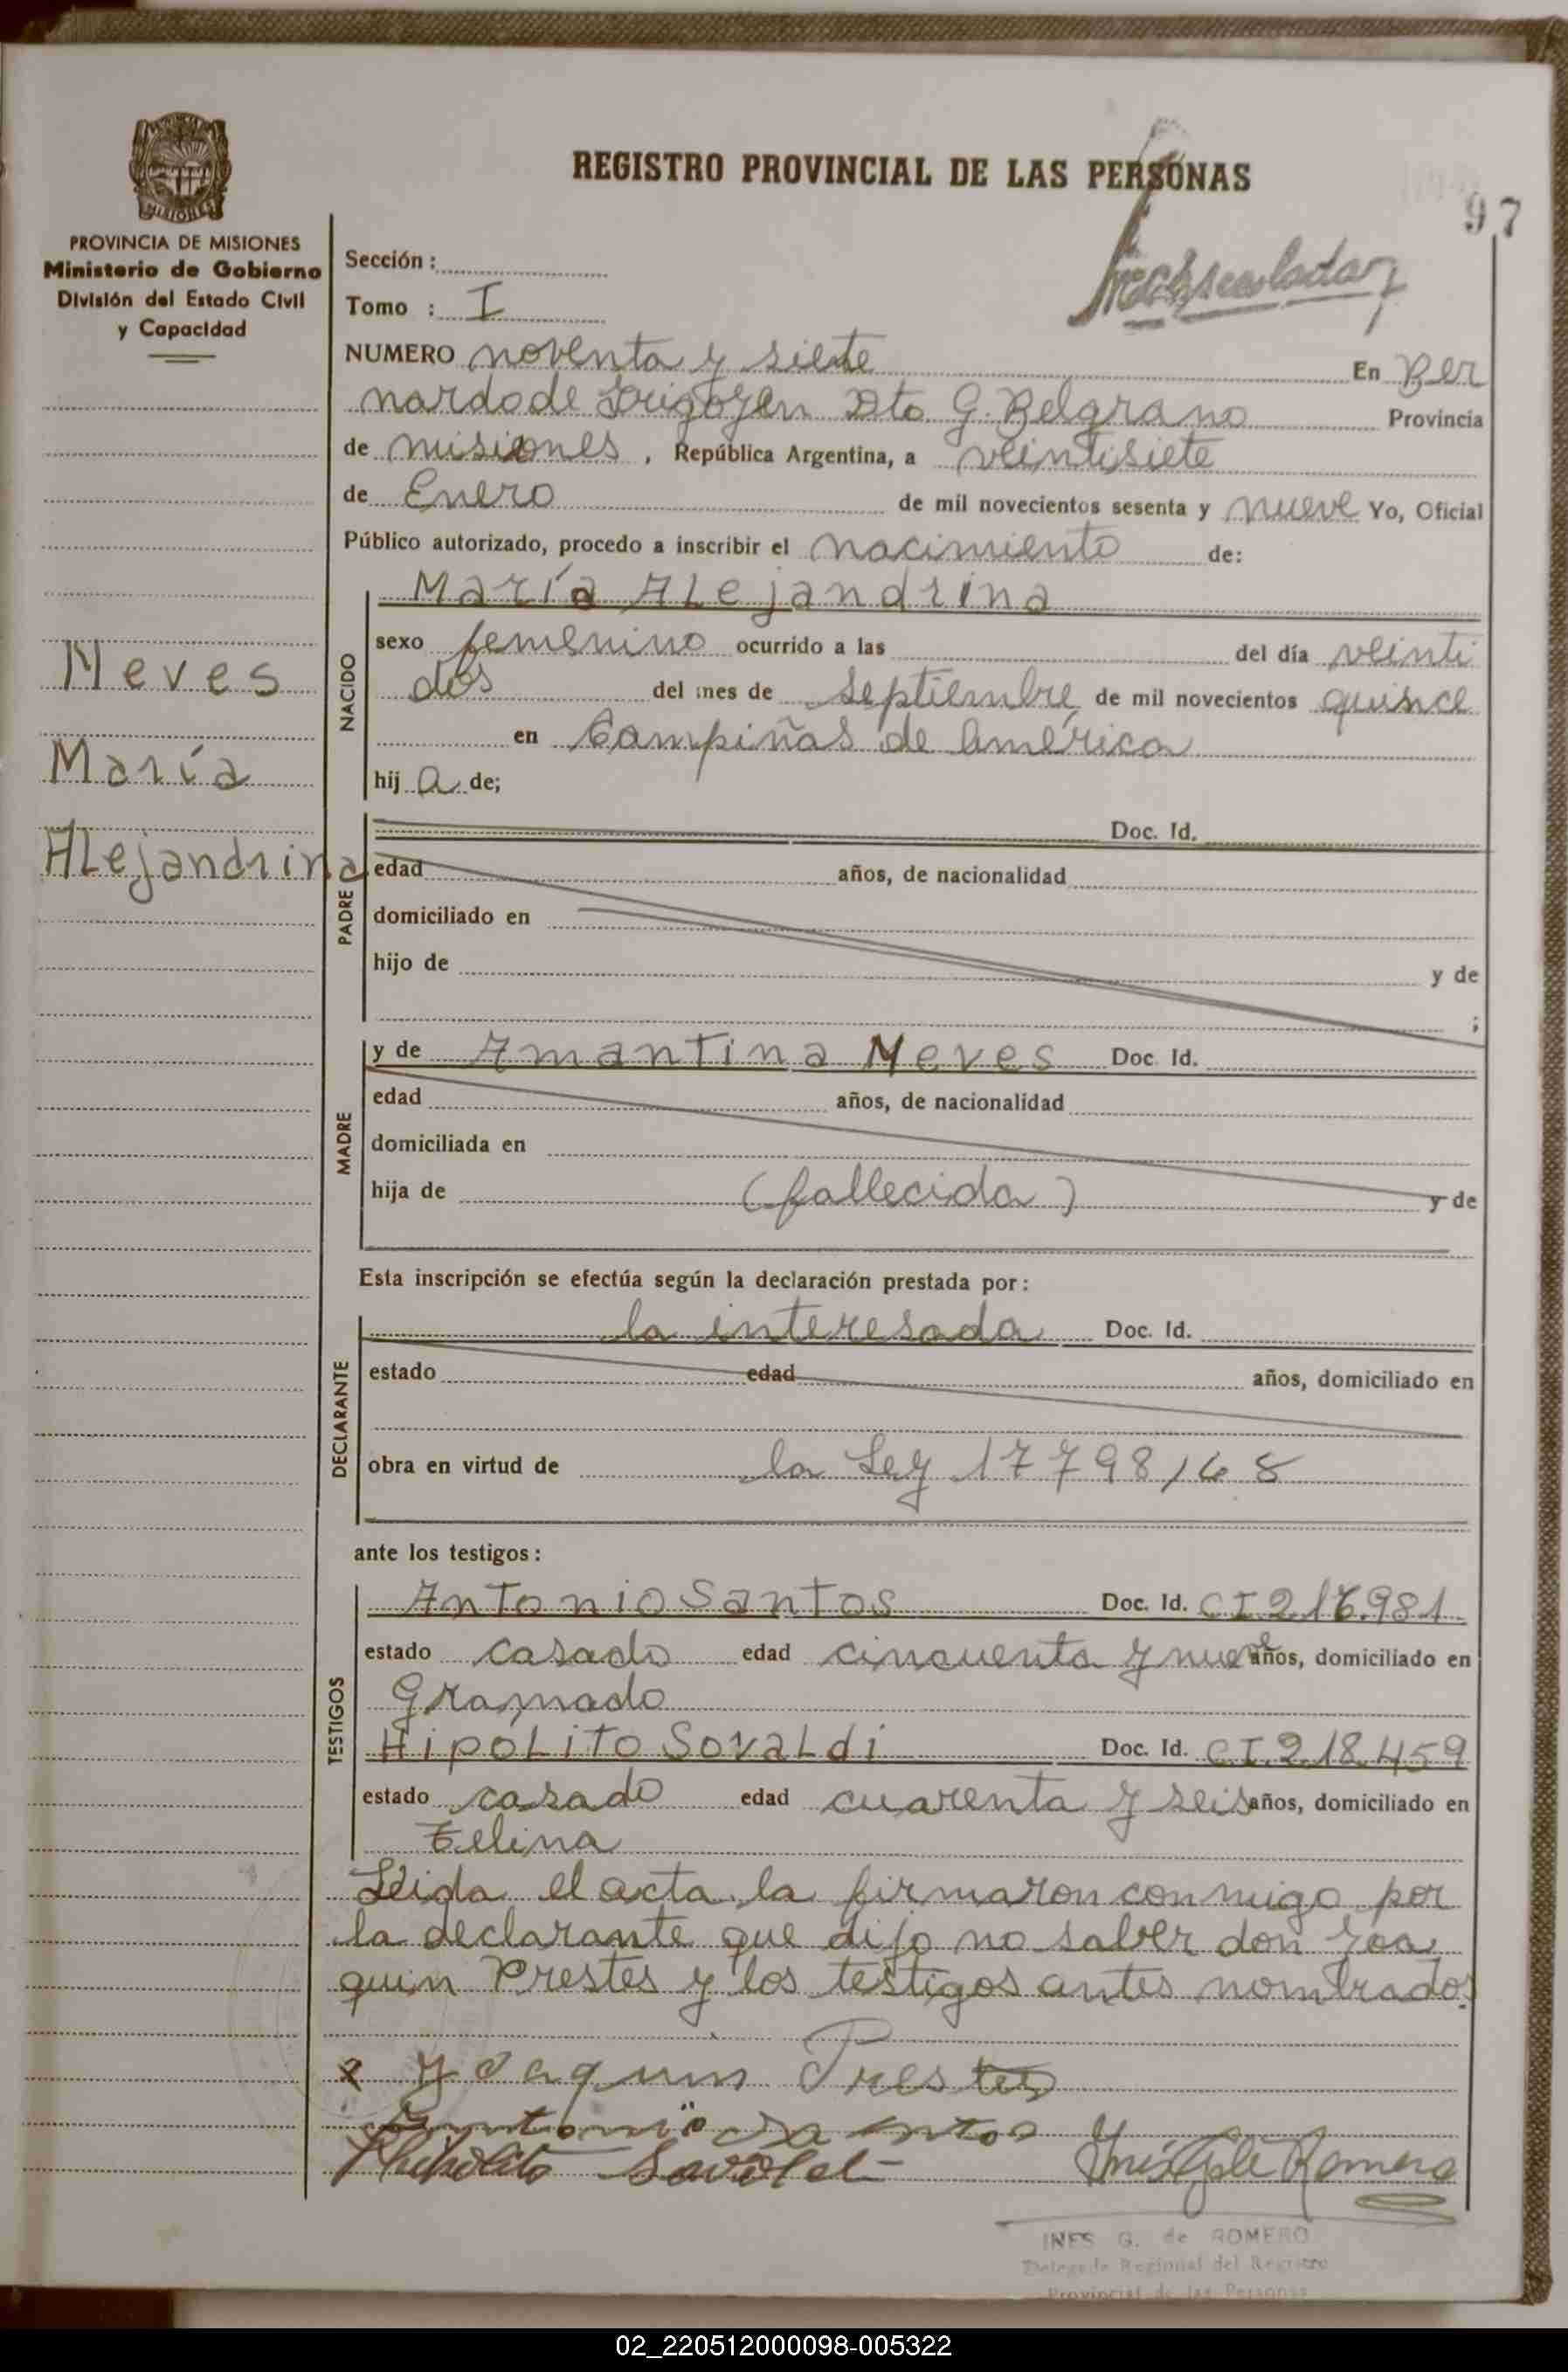 REGISTRO PROVINCIAL DE LAS PERSONAS
97
PROVINCIA DE MISIONES
Ministerio de Gobierno
División del Estado Civil
y Capacidad
Sección :
Tomo : I
NUMERO noventa y siete En Ber
nardo de Irigoyen Dto G. Belgrano Provincia
de misiones , República Argentina, a veintisiete
de Enero de mil novecientos sesenta y nueve Yo, Oficial
Público autorizado, procedo a inscribir el nacimiento de:
Neves
María
Alejandrina
NACIDO
María Alejandrina
sexo femenino ocurrido a las del día veinti
dos del mes de septiembre de mil novecientos quince
en Campiñas de américa
hij a de;
PADRE
Doc. Id.
edad años, de nacionalidad
domiciliado en
hijo de y de
;
MADRE
y de Amantina Neves Doc. Id.
edad años, de nacionalidad
domiciliada en
hija de (fallecida) y de
Esta inscripción se efectúa según la declaración prestada por:
DECLARANTE
la interesada Doc. Id.
estado edad años, domiciliado en
obra en virtud de la Ley 17798/68
ante los testigos:
TESTIGOS
Antonio Santos Doc. Id. CI 216.981
estado casado edad cincuenta y nueve años, domiciliado en
Gramado
Hipólito Sovaldi Doc. Id. CI.218.459
estado casado edad cuarenta y seis años, domiciliado en
Leida el acta la firmaron conmigo por
la declarante que dijo no saber don Joa
quin Prestes y los testigos antes nombrados
Joaquin Prestes
Antonio Santos
INES G. de ROMERO
Delegada Regional del Registro
Provincial de las Personas
02_220512000098-005322